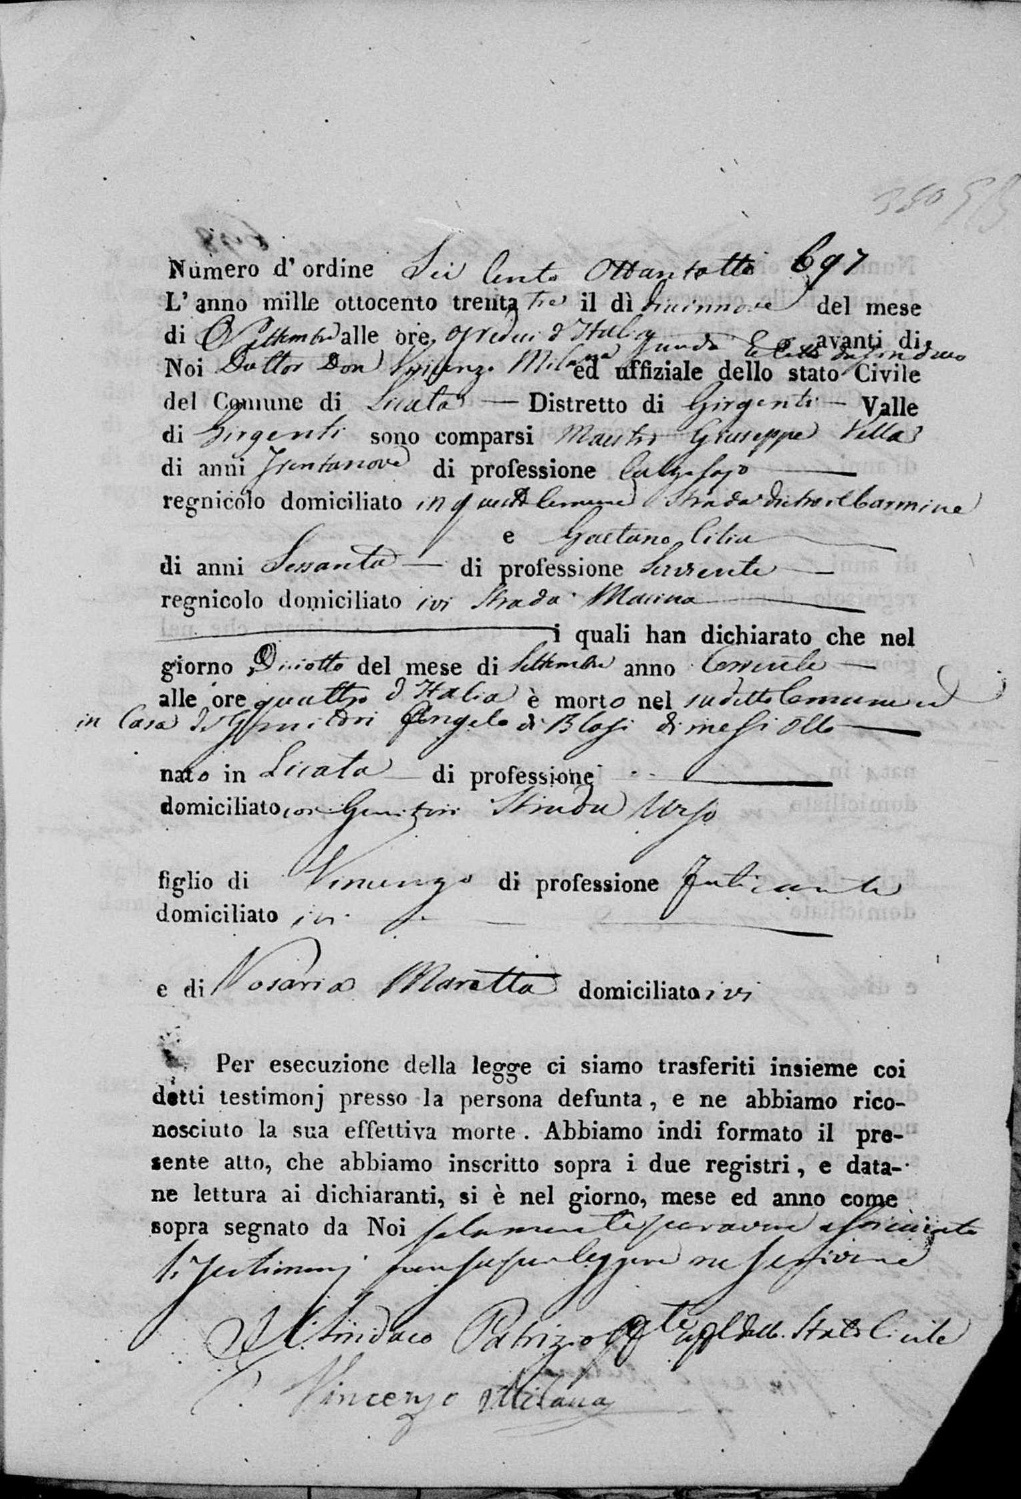 Numero d' ordine Sei Cento Ottantotto 697
L' anno mille ottocento trenta tre il dì Diecinnove del mese
di Settembre alle ore sedici d'Italia avanti di
Noi Dottor Don Vincenzo Milana ed uffiziale dello stato Civile
del Comune di Licata — Distretto di Girgenti — Valle
di Girgenti sono comparsi Maestro Giuseppe Vella
di anni Trentanove di professione Calzolajo
regnicolo domiciliato in questa Comune Strada dietro il Carmine
e Gaetano Cilia
di anni Sessanta — di professione Servente —
regnicolo domiciliato ivi Strada Marina
i quali han dichiarato che nel
giorno Diciotto del mese di Settembre anno Corrente —
alle ore quattro d'Italia è morto nel sudetto Comune ed
in Casa di Genitori Angelo di Blasi di mesi Otto
nato in Licata di professione
domiciliato coi Genitori Strada Urso
figlio di Vincenzo di professione
domiciliato ivi
e di Rosaria Maratta domiciliata ivi
Per esecuzione della legge ci siamo trasferiti insieme coi
detti testimonj presso la persona defunta, e ne abbiamo rico-
nosciuto la sua effettiva morte. Abbiamo indi formato il pre-
sente atto, che abbiamo inscritto sopra i due registri, e data-
ne lettura ai dichiaranti, si è nel giorno, mese ed anno come
sopra segnato da Noi solamente per avere asserito
li testimonj non saper leggere ne scrivere
Il Sindaco Patrizio dello Stato Civile
Vincenzo Milana